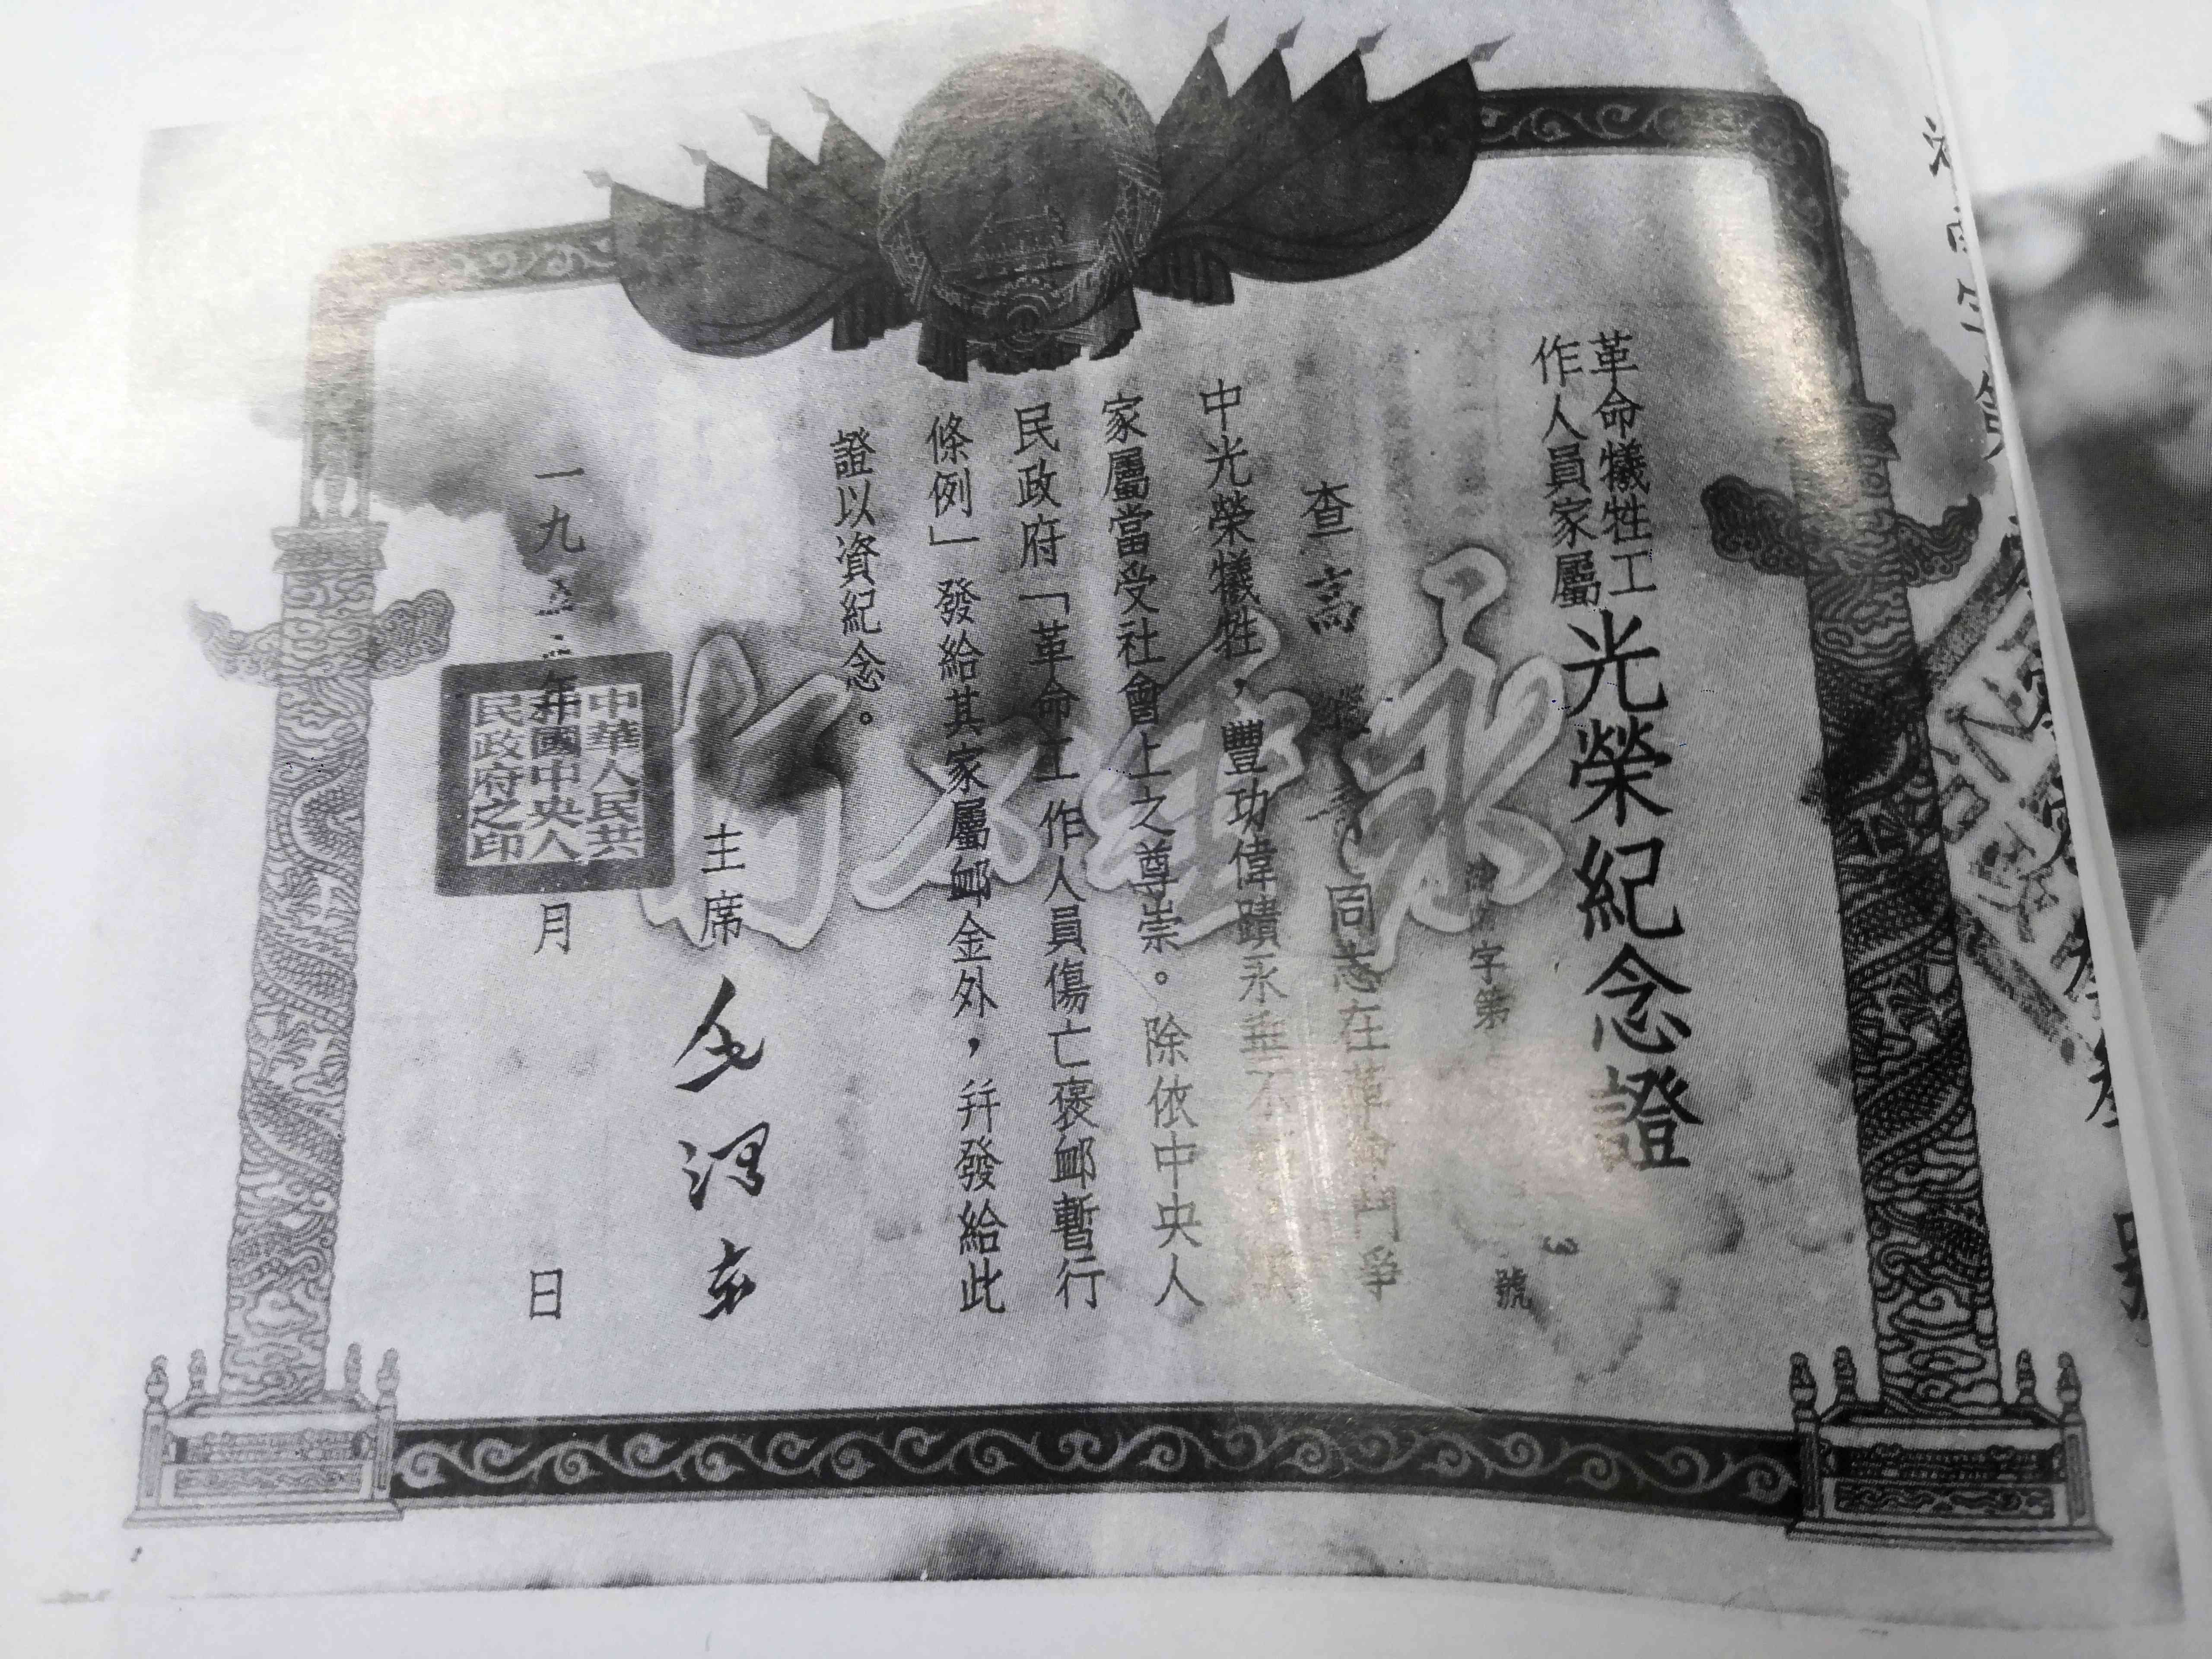 革命犧牲工
作人員家屬
光榮紀念證
字第 號
查高 同志在革命鬥爭
中光榮犧牲，豐功偉蹟永垂不
家屬當受社會上之尊崇。除依中央人
民政府「革命工作人員傷亡褒卹暫行
條例」發給其家屬卹金外，幷發給此
證以資紀念。
主席 毛澤東
一九五 年 月 日
中華人民共
和國中央人
民政府之印
永垂不朽